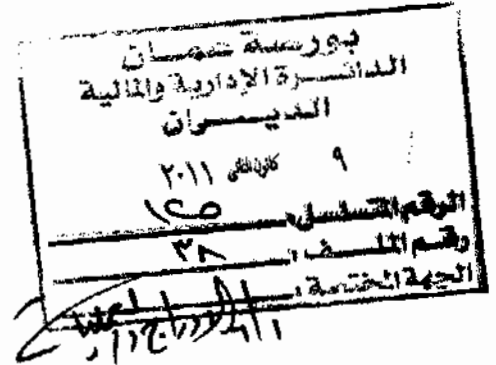 بورصة عمان
الدائرة الإدارية والمالية
الديوان
٩ كانون الثاني ٢٠١١
الرقم المتسلسل:
رقم الملف: ٣٨
الجهة المختصة: